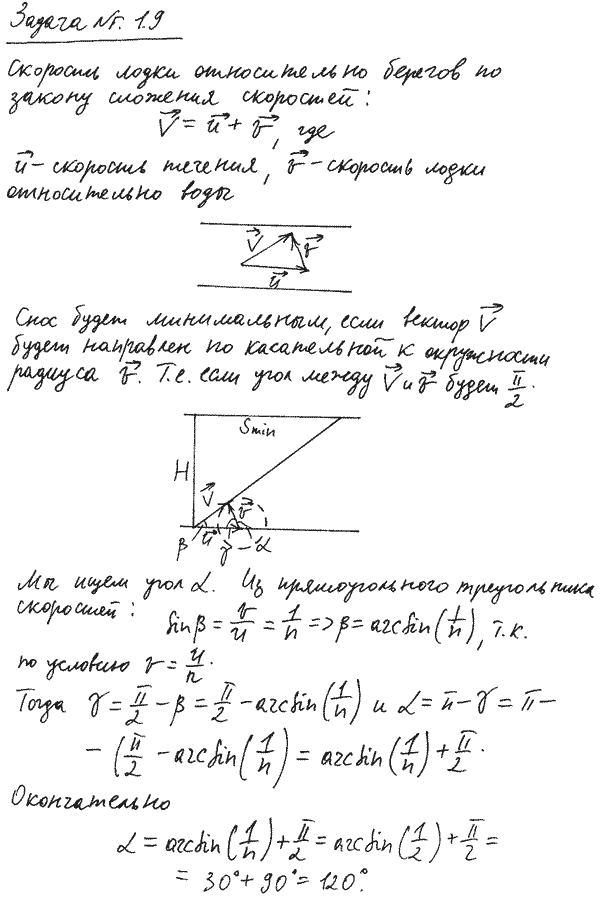 Задача №. 1.9
Скорость лодки относительно берегов по
закону сложения скоростей:
V⃗ = u⃗ + v⃗, где
u⃗ - скорость течения, v⃗ - скорость лодки
относительно воды
V⃗ v⃗
u⃗
Снос будет минимальным, если вектор V⃗
будет направлен по касательной к окружности
радиуса v⃗. Т.е. если угол между V⃗ и v⃗ будет π/2.
Smin
H
V⃗ v⃗
β u⃗ γ α
Мы ищем угол α. Из прямоугольного треугольника
скоростей: sinβ = v/u = 1/n => β = arcsin(1/n), т.к.
по условию v = u/n.
Тогда γ = π/2 - β = π/2 - arcsin(1/n) и α = π - γ = π -
- (π/2 - arcsin(1/n) = arcsin(1/n) + π/2.
Окончательно
α = arcsin(1/n) + π/2 = arcsin(1/2) + π/2 =
= 30° + 90° = 120°.